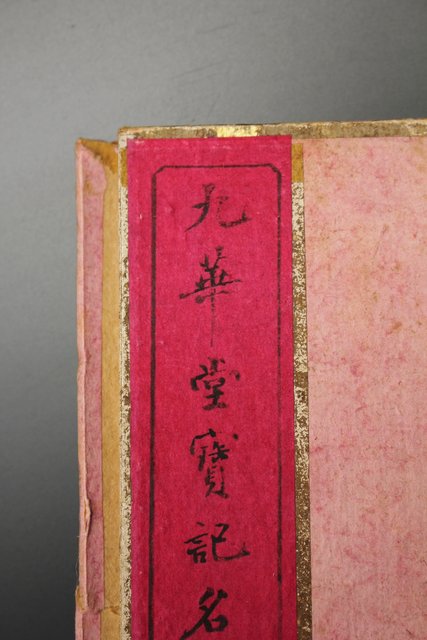 九華堂寶記名